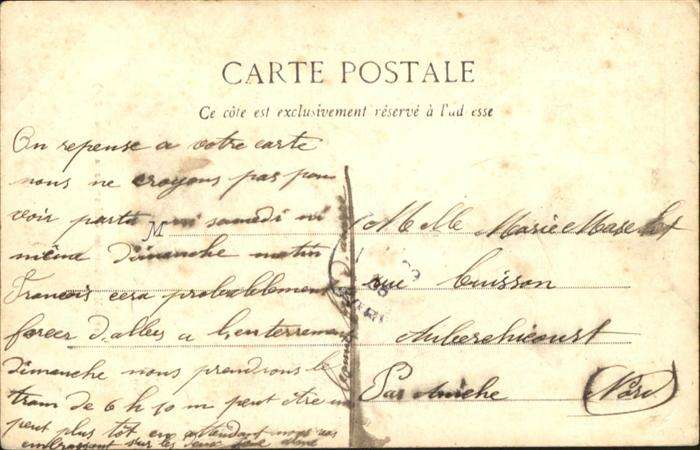 CARTE POSTALE
Ce côte est exclusivement réservé à l'ad esse
On repense a votre carte
nous ne croyons pas pou
voir parti ni samedi ni
même dimanche matin
Francois cera probablement
forcer d'alles a l'enterremen
dimanche nous prendrons le
tram de 6 h 10 m peut être un
peut plus tôt en attendant nous vos
embrassent sur les deux
M
Melle Marie
rue Cuisson
Auberchicourt
Par Aniche
Nord